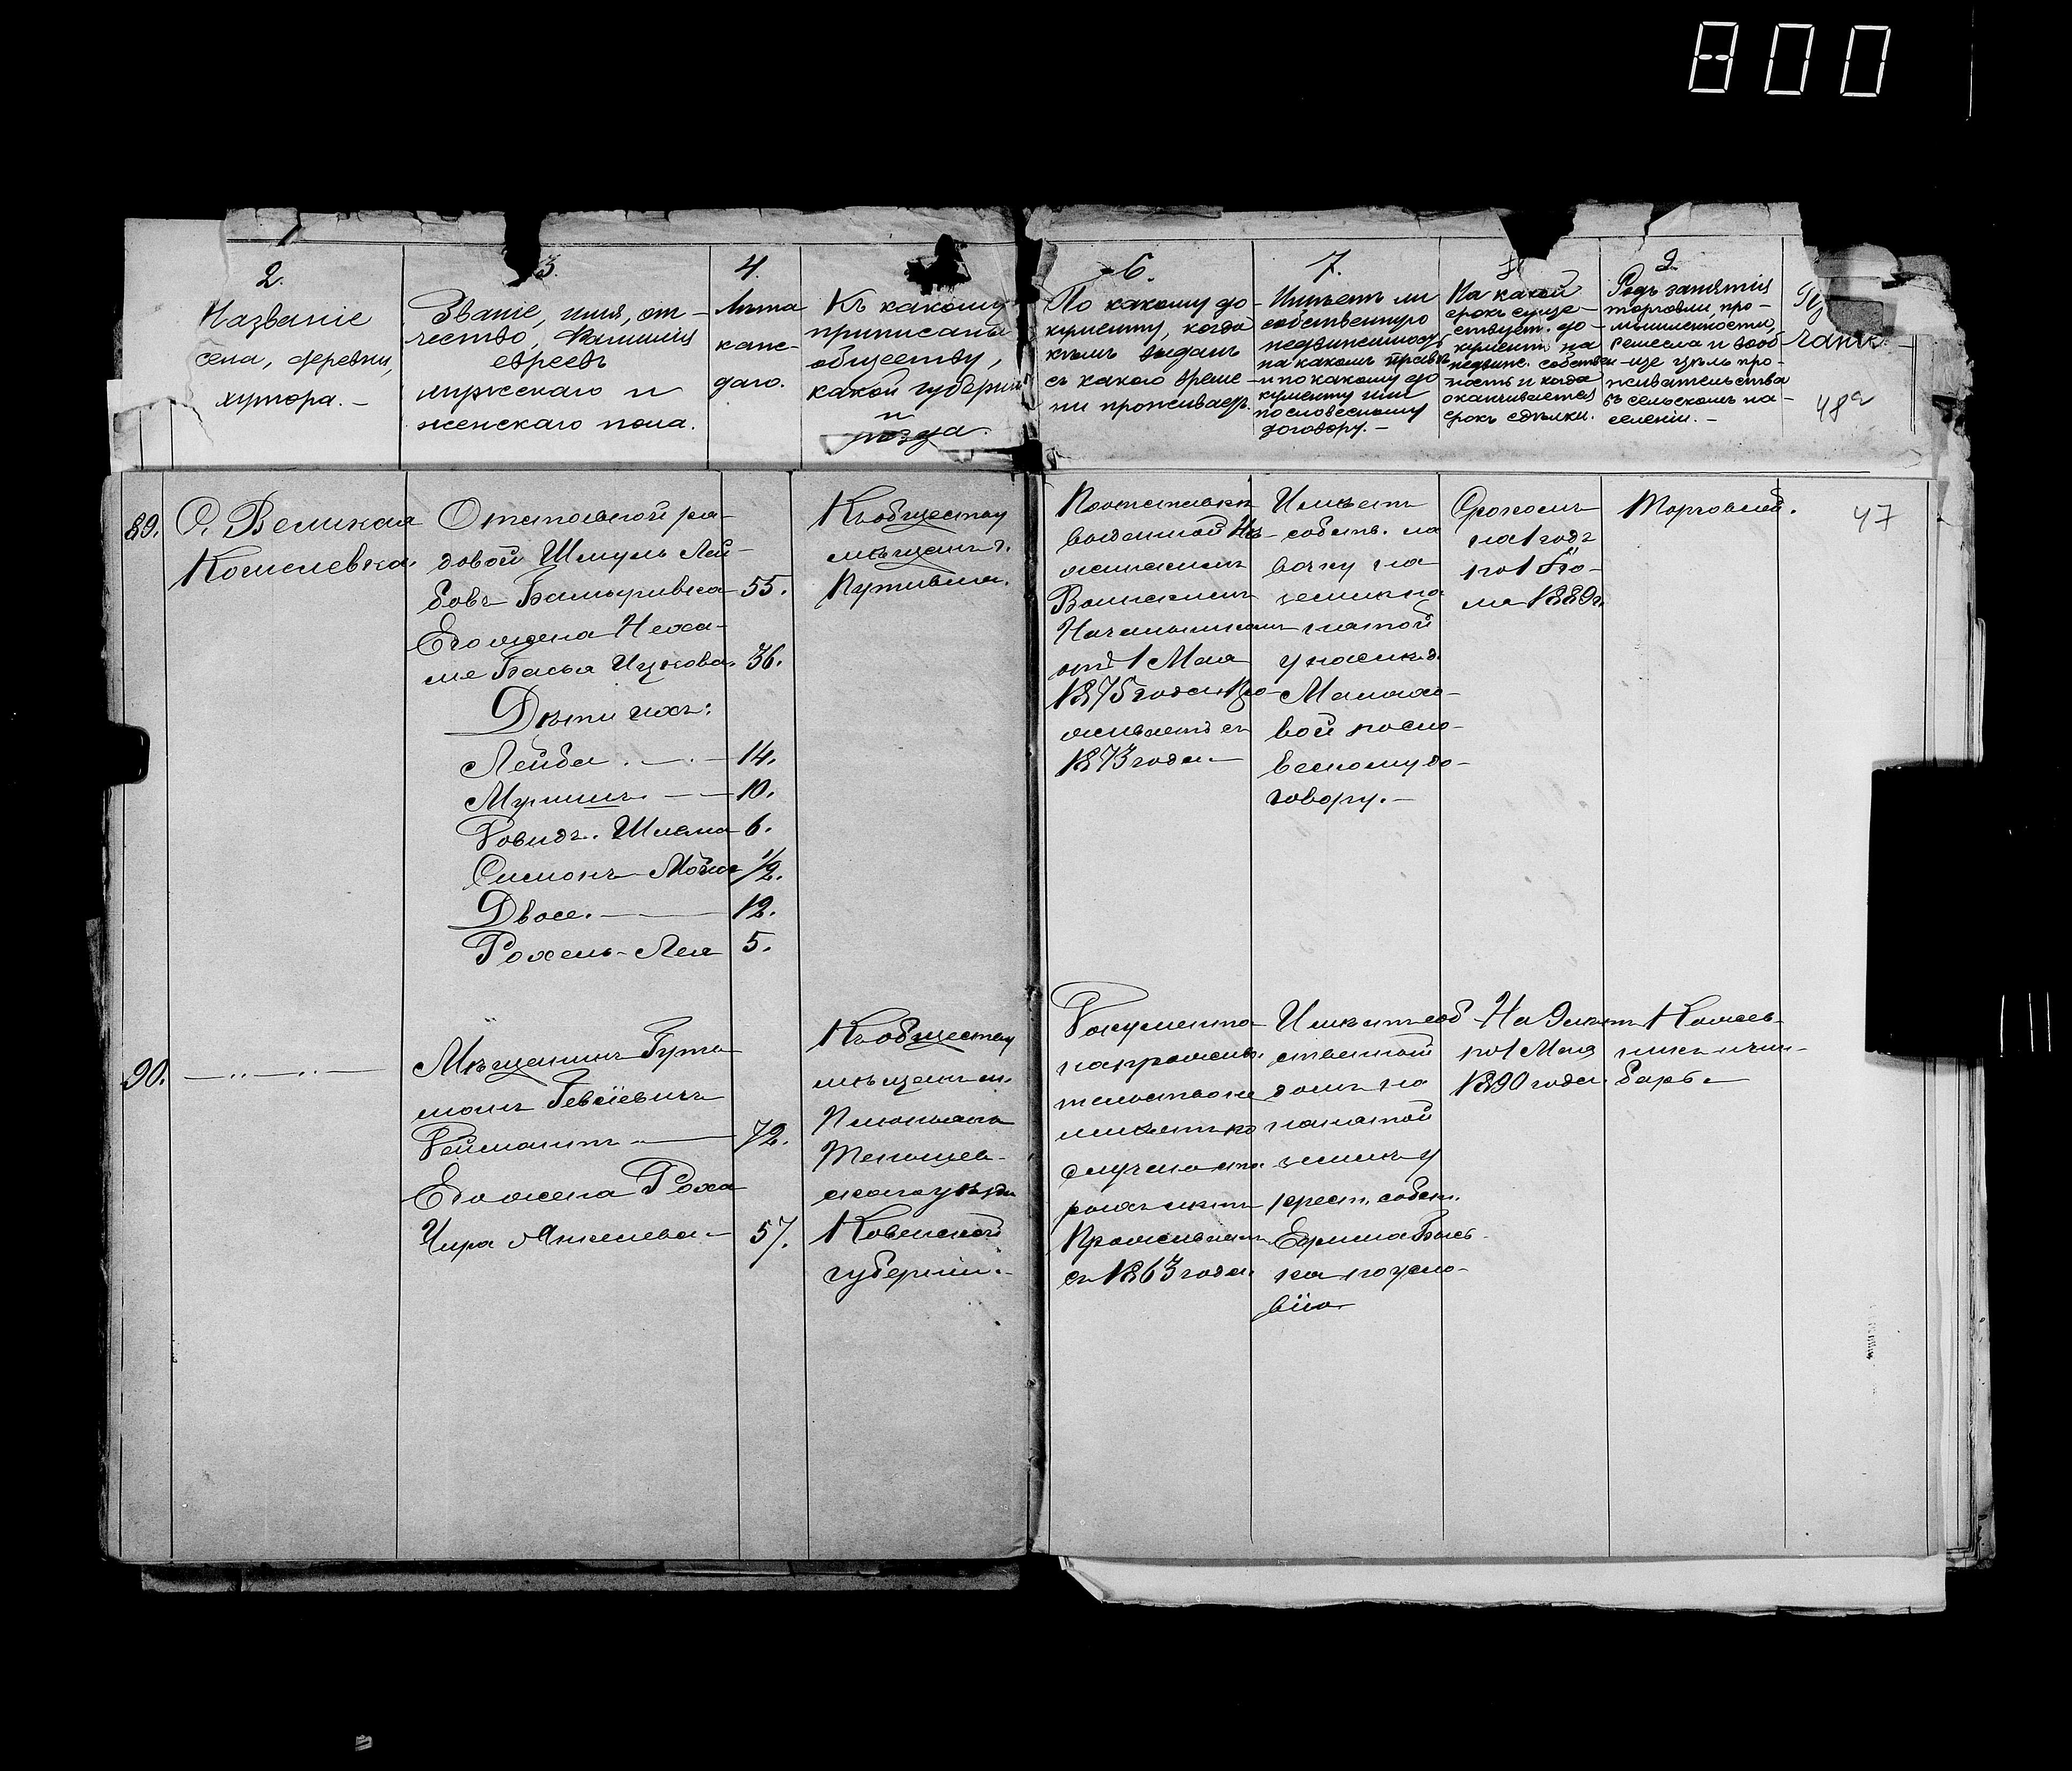 800
2.
Названіе
села, деревни,
хутора. —
3.
Званіе, имя, от-
чество, Фамилія
евреевъ
мужскаго и
женскаго пола.
4.
Лѣта
каж-
даго.
Къ какому
приписаны
обществу,
какой губерніи
и
уѣзда.
6.
По какому до-
кументу, когда
кѣмъ выданъ
съ какого време-
ни проживаетъ.
7.
Имѣетъ ли
собственную
недвижимость
на какомъ правѣ
и по какому до-
кументу или
по словесному
договору. —
На какой
срокъ суще-
ствует. до-
кументъ на
недвиж. собствен-
ность и когда
оканчивается
срокъ сдѣлки.
9.
Родъ занятія
торговли, про-
мышленности,
ремесла и вооб-
ще цѣль про-
живательства
въ сельскомъ на-
селеніи. —
48а
89.
С. Великая
Кошелевка.
Отставной ря-
довой Шмуль Лей-
бовъ 55.
Его жена Неха-
ме Басья Ицкова. 36.
Дѣти ихъ:
Лейба 14.
10.
Довидъ. Шлема 6.
Симонъ 1/2.
Двося. 12.
Рохель-Лея 5.
Къ обществу
мѣщанъ г.
Путивля.
По отставкѣ
выданной Нѣ-
жинскимъ
Воинскимъ
Начальникомъ
отъ 1 Мая
1875 года. Про-
живаетъ съ
1873 года. —
Имѣетъ
собств. ла-
вочку на
земли на-
нятой
у
вой по сло-
весному до-
говору. —
Срокомъ
на 1 годъ
по 1 Ію-
ля 1889 г.
Торговлей.
47
90.
Мѣщанинъ Гут-
манъ
72.
Его жена Роха
Цира 57.
Къ обществу
мѣщанъ м.
Тельшев-
скаго уѣзда
Ковенской
губерніи. —
Документа
на прожи-
тельство не
имѣетъ по
случаю ста-
рыхъ лѣтъ
Проживаетъ
съ 1863 года.
Имѣетъ соб-
ственный
домъ на
нанятой
землѣ у
крест. собств.
по усло-
вію
На 9 лѣтъ
по 1 Мая
1890 года.